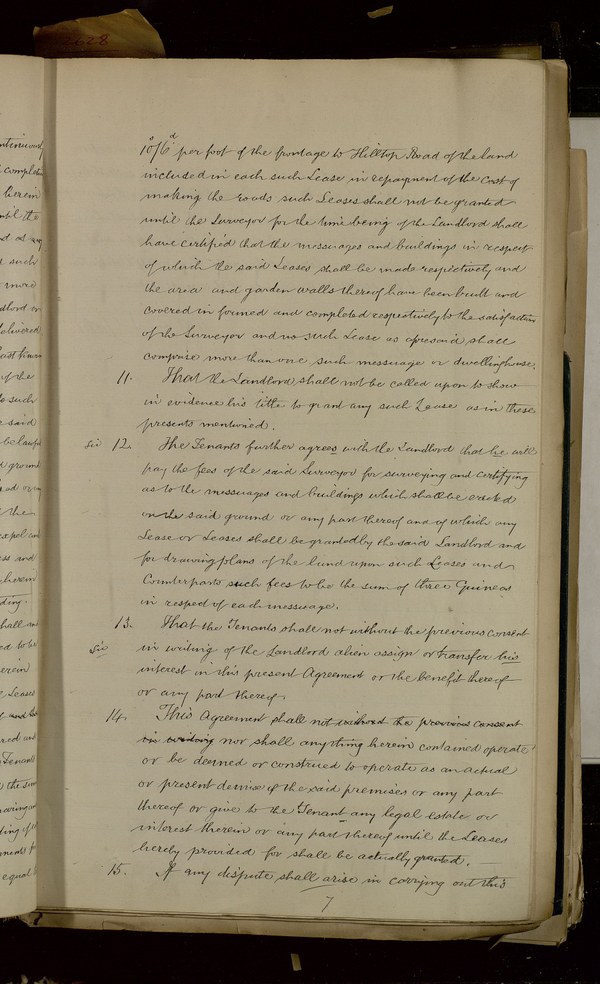 10/6 per foot of the frontage to Hilltop Road of the land
included in each such Lease in repayment of the Cost of
making the roads such Leases shall not be granted
until the Surveyor for the time being of the Landlord shall
have certified that the messuages and buildings in respect
of which the said Leases shall be made respectively and
the area and garden walls thereof have been built and
covered in formed and completed respectively to the satisfaction
of the Surveyor and no such Lease as aforesaid shall
comprise more than one such messuage or dwellinghouse.
11. That the Landlord shall not be called upon to show
in evidence his title to grant any such Lease as in these
presents mentioned.
Sic 12. The Tenants further agrees with the Landlord that he will
pay the fees of the said Surveyor for surveying and certifying
as to the messuages and buildings which shall be erected
on the said ground or any part thereof and of which any
Lease or Leases shall be granted by the said Landlord and
for drawing plans of the land upon such Leases and
Counterparts such fees to be the sum of three Guineas
in respect of each messuage.
13. That the Tenants shall not without the previous consent
Sic in writing of the Landlord alien assign or transfer his
interest in this present Agreement or the benefit thereof
or any part thereof.
14. This Agreement shall not without the previous consent
in writing nor shall anything herein contained operate
or be deemed or construed to operate as an actual
or present demise of the said premises or any part
thereof or give to the Tenant any legal estate or
interest therein or any part thereof until the Leases
hereby provided for shall be actually granted.
15. If any dispute shall arise in carrying out this
7